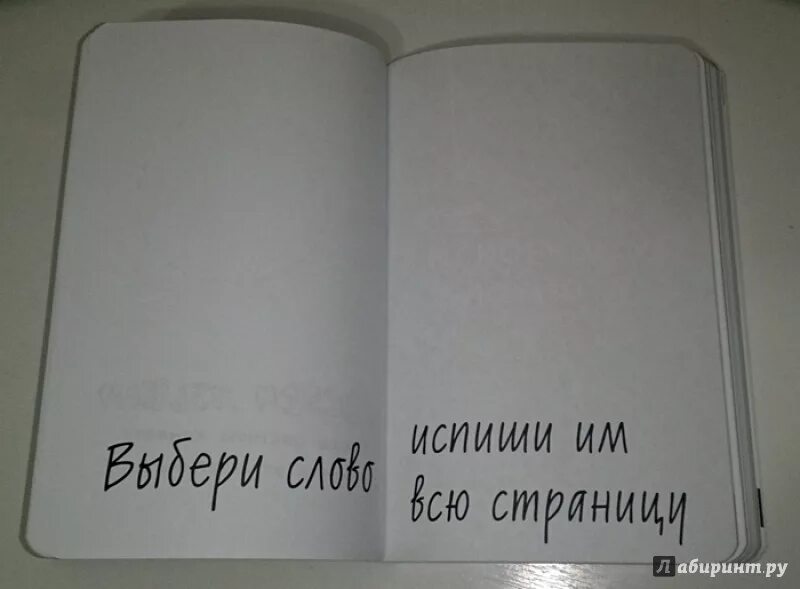 Выбери слово
испиши им
всю страницу
Лабиринт.ру